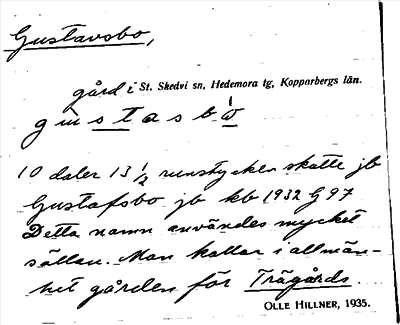 Gustavsbo,
gård i St. Skedvi sn, Hedemora tg, Kopparbergs län.
gustasbω
10 daler 13 1/2 runstycken skatte jb
Gustafsbo jb kb 1932 G 97
Detta namn användes mycket
sällan. Man kallar i allmän-
het gården för Trägårds.
OLLE HILLNER, 1935.